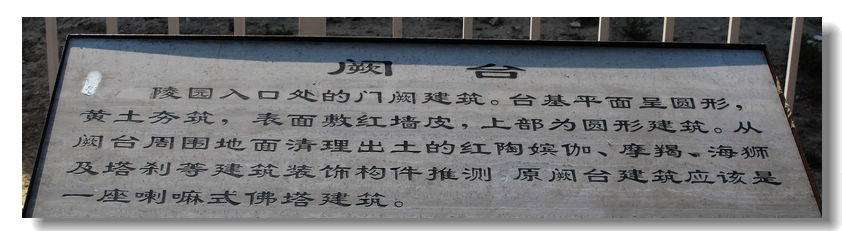 阙 台
陵园入口处的门阙建筑。台基平面呈圆形，
黄土夯筑，表面敷红墙皮，上部为圆形建筑。从
阙台周围地面清理出土的红陶嫔伽、摩羯、海狮
及塔刹等建筑装饰构件推测 原阙台建筑应该是
一座喇嘛式佛塔建筑。